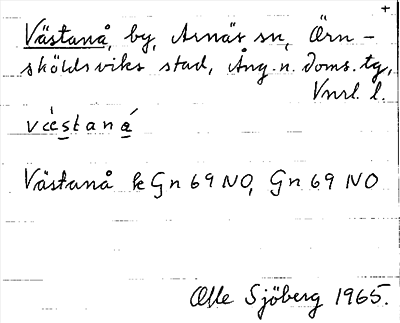 +
Västanå, by, Arnäs sn, Örn-
sköldsviks stad, Ång. n. doms. tg,
Vnrl. l.
Västanå k Gn 69 NO, Gn 69 NO
Olle Sjöberg 1965.